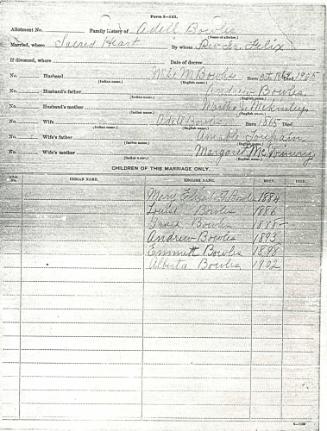 Form 5—153.
Allotment No. Family History of Adell B
Married, where Sacred Heart By whom Rev Sr Felix
If divorced, where Date of decree
No. Husband Mike M Bowles Born Died
(Indian name.) (English name.)
No. Husband's father Andrew Bowles
(Indian name.) (English name.)
No. Husband's mother Martha
(Indian name.) (English name.)
No. Wife Adell Bowles Born 1865 Died
(Indian name.) (English name.)
No. Wife's father
(Indian name.) (English name.)
No. Wife's mother Margaret
(Indian name.) (English name.)
CHILDREN OF THE MARRIAGE ONLY.
No. INDIAN NAME. ENGLISH NAME. BORN. DIED.
Mary Elizabeth Bowles 1884
Louise Bowles 1886
Grace Bowles 1888
Andrew Bowles 1893
Emmett Bowles 1898
Alberta Bowles 1902